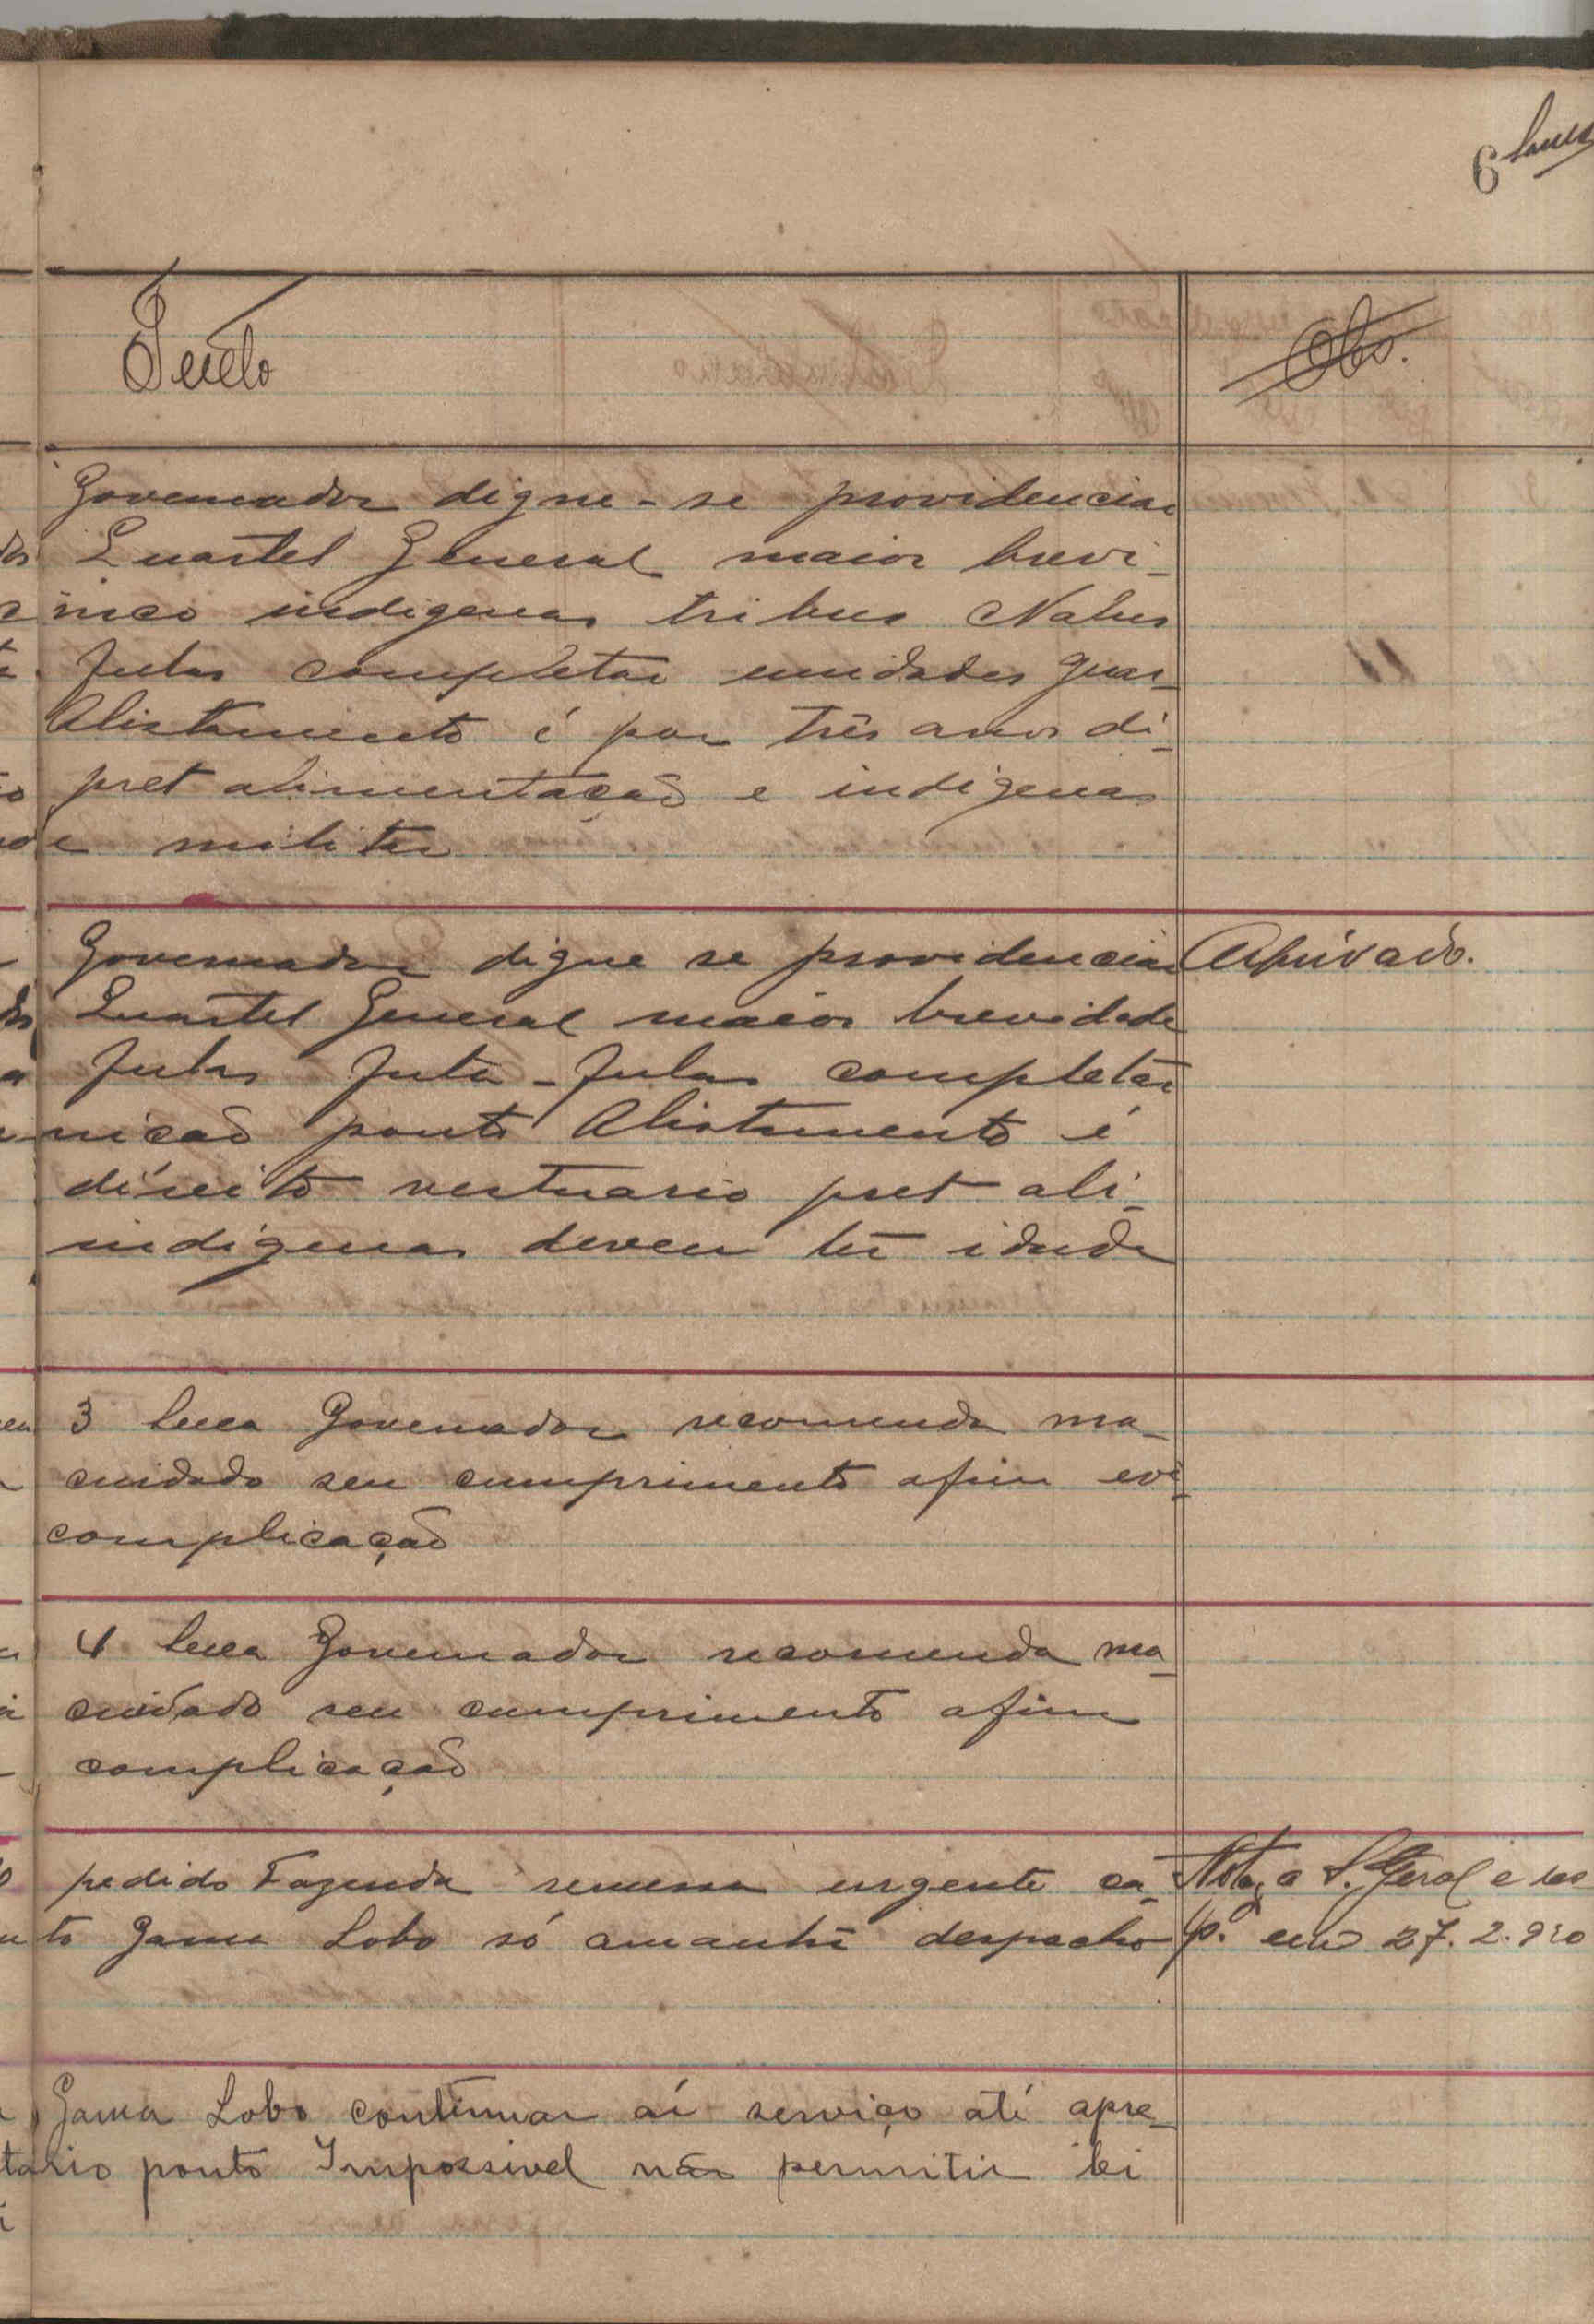 6
Texto
Obs.
Governador digne-se providenciar
Quartel General maior brevi-
inco indigenas tribus Nalus
Fulas completar unidades guar-
Alistamento é por três anos di-
pret alimentação e indigenas
militar
Governador digne se providenciar
Arquivado.
Quartel General maior brevidade
Fulas Futa-Fulas completar
nição ponto Alistamento é
direito vestuario pret ali-
indigenas devem ter idade
3 Governador recomenda ma-
cuidado seu cumprimento afim evi-
complicação
4 Governador recomenda ma-
cuidado seu cumprimento afim
complicação
pedido Fazenda remessa urgente
Nota a S. Geral e
to Gama Lobo só amanhã despacho
em 27.2.920
Gama Lobo continuar aí serviço até apre-
tario ponto Impossivel não permitir lei